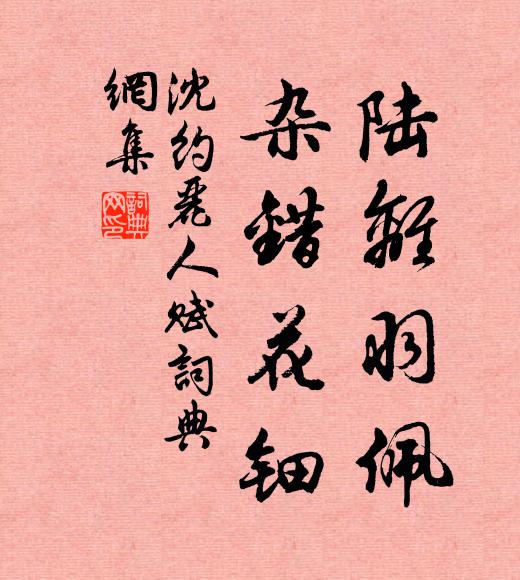 陆離羽佩
杂錯花钿
沈约麗人赋詞典
網集
詞典
网印